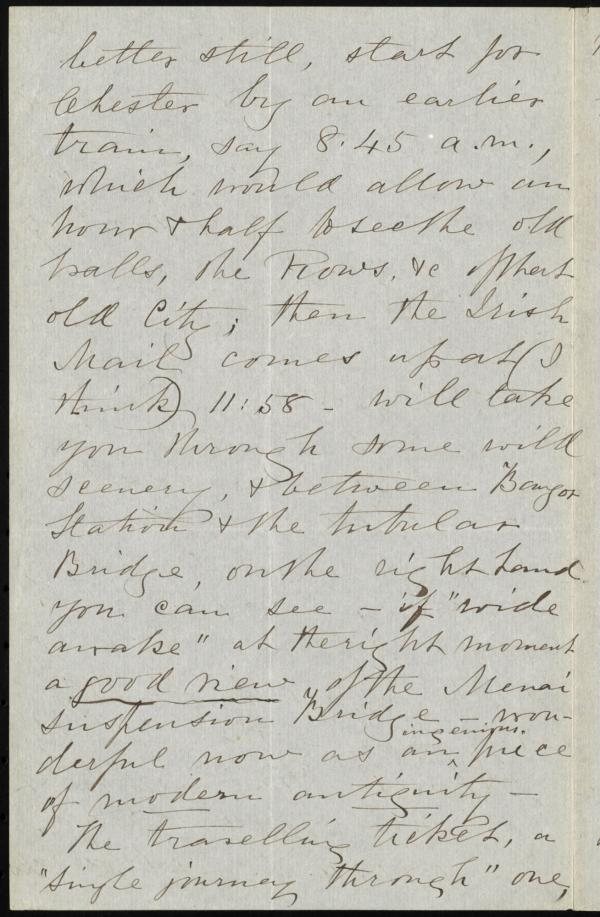 better still, start for
Chester by an earlier
train, say 8.45 a.m.,
which would allow an
hour & half to see the old
walls, the Rows, &c of that
old City; then the Irish
Mail comes up at (I
think) 11:58 - will take
you through some wild
scenery, & between Bangor
Station & the tubular
Bridge, on the right hand
you can see - if "wide
awake" at the right moment
a good view of the Menai
suspension Bridge - won-
derful now as an ingenious piece
of modern antiquity -
The travelling ticket, a
"single journey through" one,